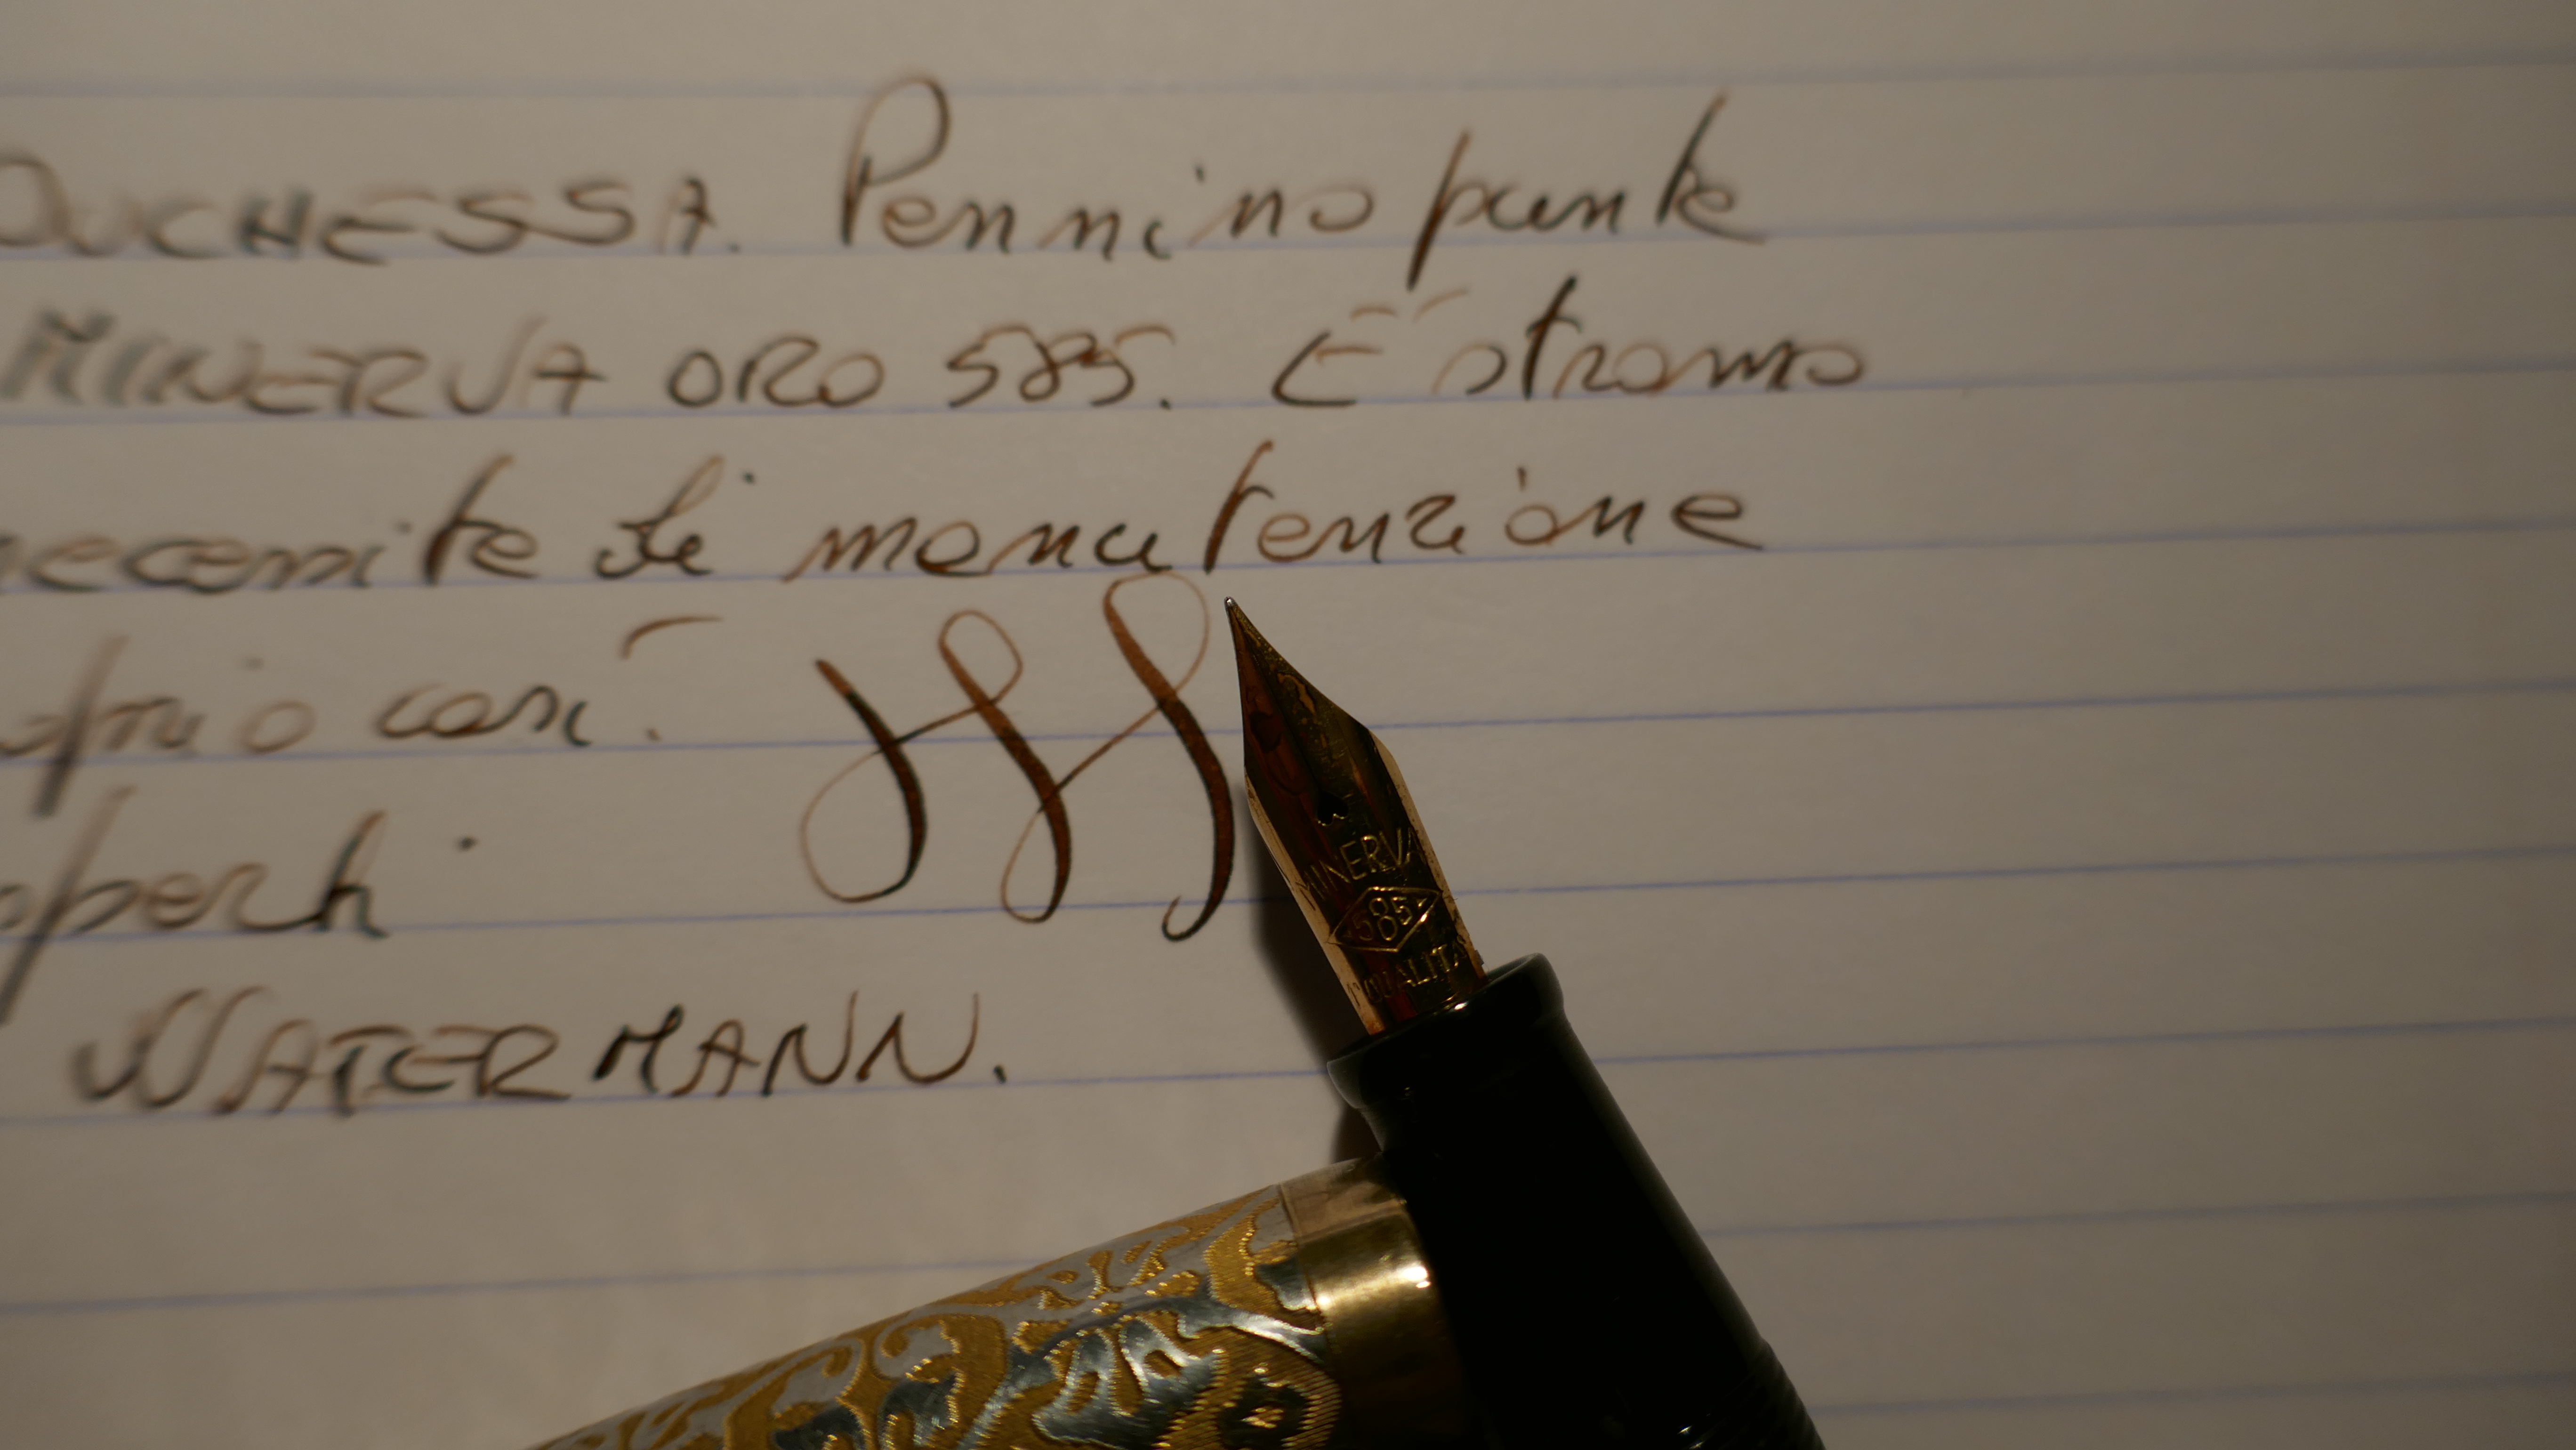 DUCHESSA. Pennino punta
MINERVA ORO 585. È strano
necessita di manutenzione
proprio così.
WATERMANN.
MINERVA
585
QUALITA